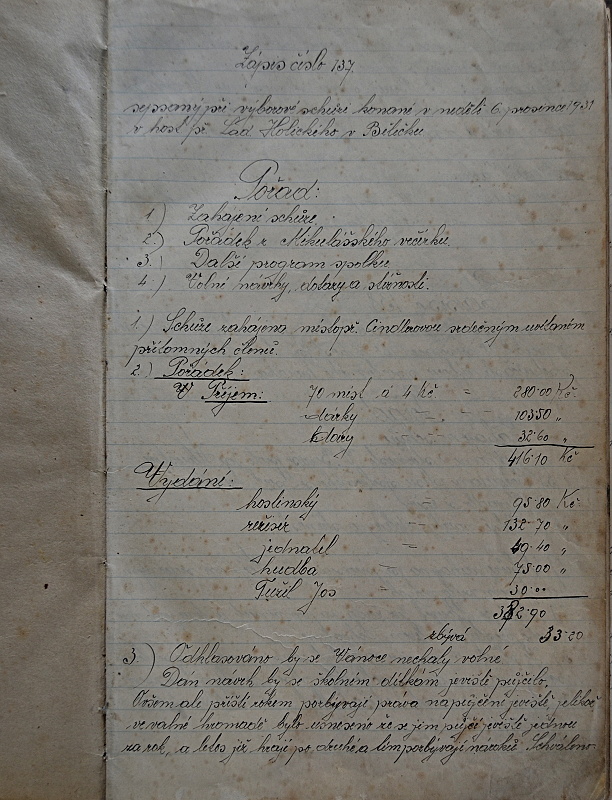 Zápis číslo 137.
sepsaný při výborové schůzi konané v neděli 6. prosince 1931
v host př Lad Holického v Bělečku
Pořad:
1.) Zahájení schůze.
2.) Pořádek z Mikulášského večírku.
3.) Další program spolku.
4.) Volní návrhy, dotazy a stížnosti.
1.) Schůze zahájena místopř. Cindlerovou srdečným uvítáním
přítomných členů.
2.) Pořádek:
V Příjem: 70 míst á 4 Kč. = 280·00 Kč.
dárky - - - 103·50 "
dary - - - 32·60 "
416·10 Kč
Vydání:
hostinský = 95·80 Kč
režisér = 132·70 "
jednatel = 49·40 "
hudba = 75·00 "
Jos = 30·00
382·90
zbývá 33·20
3.) Odhlasováno by se Vánoce nechaly volné
Dán návrh by se školním dítkám jeviště půjčilo.
Ovšem ale příští rokem pozbývají práva na půjčení jeviště jelikož
ve valné hromadě bylo usneseno že se jim půjčí jeviště jednou
za rok, a letos již hrají po druhé a tím pozbývají nároků. Schváleno